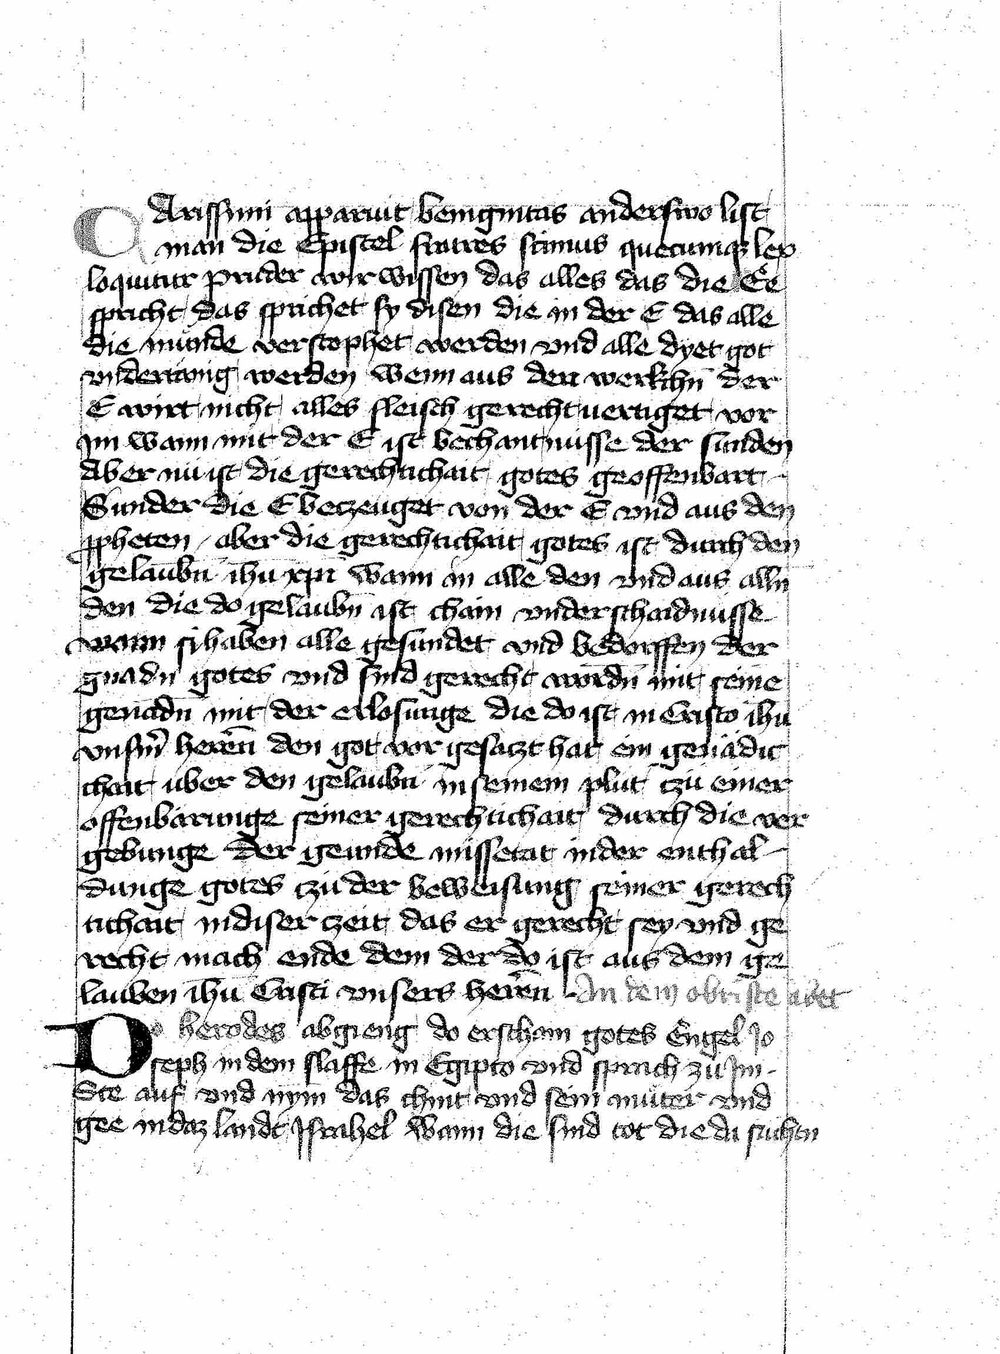 CArissimi apparuit benignitas anderswo list
man die Epistel fratres scimus quecumqꝫ lex
loquitur Pruder wir wissen das alles das die Ee
spricht das sprichet sy disen die in der E das alle
die münde verstophet werden vnd alle dyet got
vndertänig werden wenn aus den werkchn̄ der
E wirt nicht alles fleisch gerechtuertiget vor
Im wann mit der E ist bechantnüsse der sunden
Aber nu ist die gerechtichait gotes geoffenbart
Sunder die E betzeuget von der E vnd aus den
ꝓpheten / aber die gerechtichait gotes ist durch den
gelaubn̄ ihu xp̄i wann in alle den vnd aus alln̄
den die do gelaubn̄ ist chain vnderschaidnusse
wann sy haben alle gesundet vnd bedorffen der
gnadn̄ gotes vnd sind gerecht wordn̄ mit seine
genadn̄ mit der erlosunge die do ist in Cristo ihu
vnsm̄ herēn den got vor gesatzt hat ein genädit
chait über den gelaubn̄ in seinem plut czü einer
offenbarunge seiner gerechtichait durch die ver
gebunge der geunde missetat in der enthal-
dunge gotes czü der beweisung seiner gerech
tichait in diser zeit das er gerecht sey vnd ge
recht mach ende dem der do ist aus dem ge
lauben ihu Cristi vnsers herēn An dem obriste abet
Do herodes abgieng do erscham gotes Engel Jo
seph in dem slaffe in Egipto vnd sprach zü Im -
Ste auf vnd nym das chint vnd sein müter vnd
gee in daz landt Israhel wann die sind tot die da suchtn